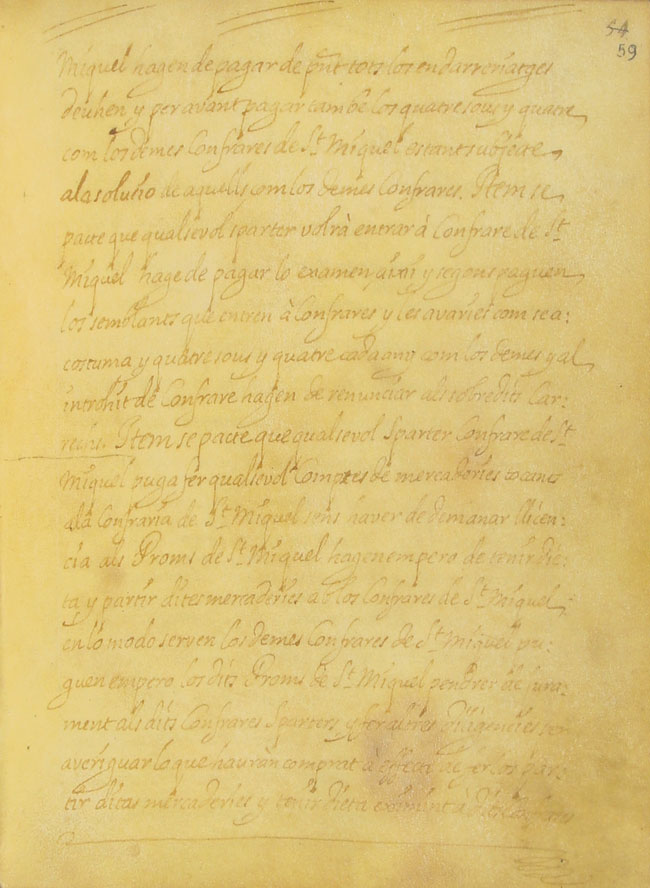 54
59
Miquel hagen de pagar de pnt tots los endarreriatges
deuhen y per avant pagar tambe los quatre sous y quatre
com los demes Confrares de St Miquel estant subjecte
a la solusio de aquells com los demes Confrares. Item se
pacte que qualsevol sparter volrà entrar á Confrare de St
Miquel hage de pagar lo examen y segons paguen
los semblants que entren à Confrares y les avaries com se a:
costuma y quatre sous y quatre cada any com los demes y al
introhit de Confrare hagen de renunciar als sobredits Car:
rechs. Item se pacte que qualsevol Sparter Confrare de St
Miquel puga fer qualsevol Comptes de mercaderies
a la Confraria de St Miquel sens haver de demanar llicen:
cia als Proms de St Miquel hagen empero de tenir die:
ta y partir dites mercaderies ab los Confrares de St Miquel
en lo modo serven los demes Confrares de St Miquel pu:
guen empero los dits Proms de St Miquel pendrer de jura:
ment als dits Confrares Sparters y fer altres diligencies per
averiguar lo que hauràn comprat à effecte de fer los par:
tir ditas mercaderies y tenir dieta